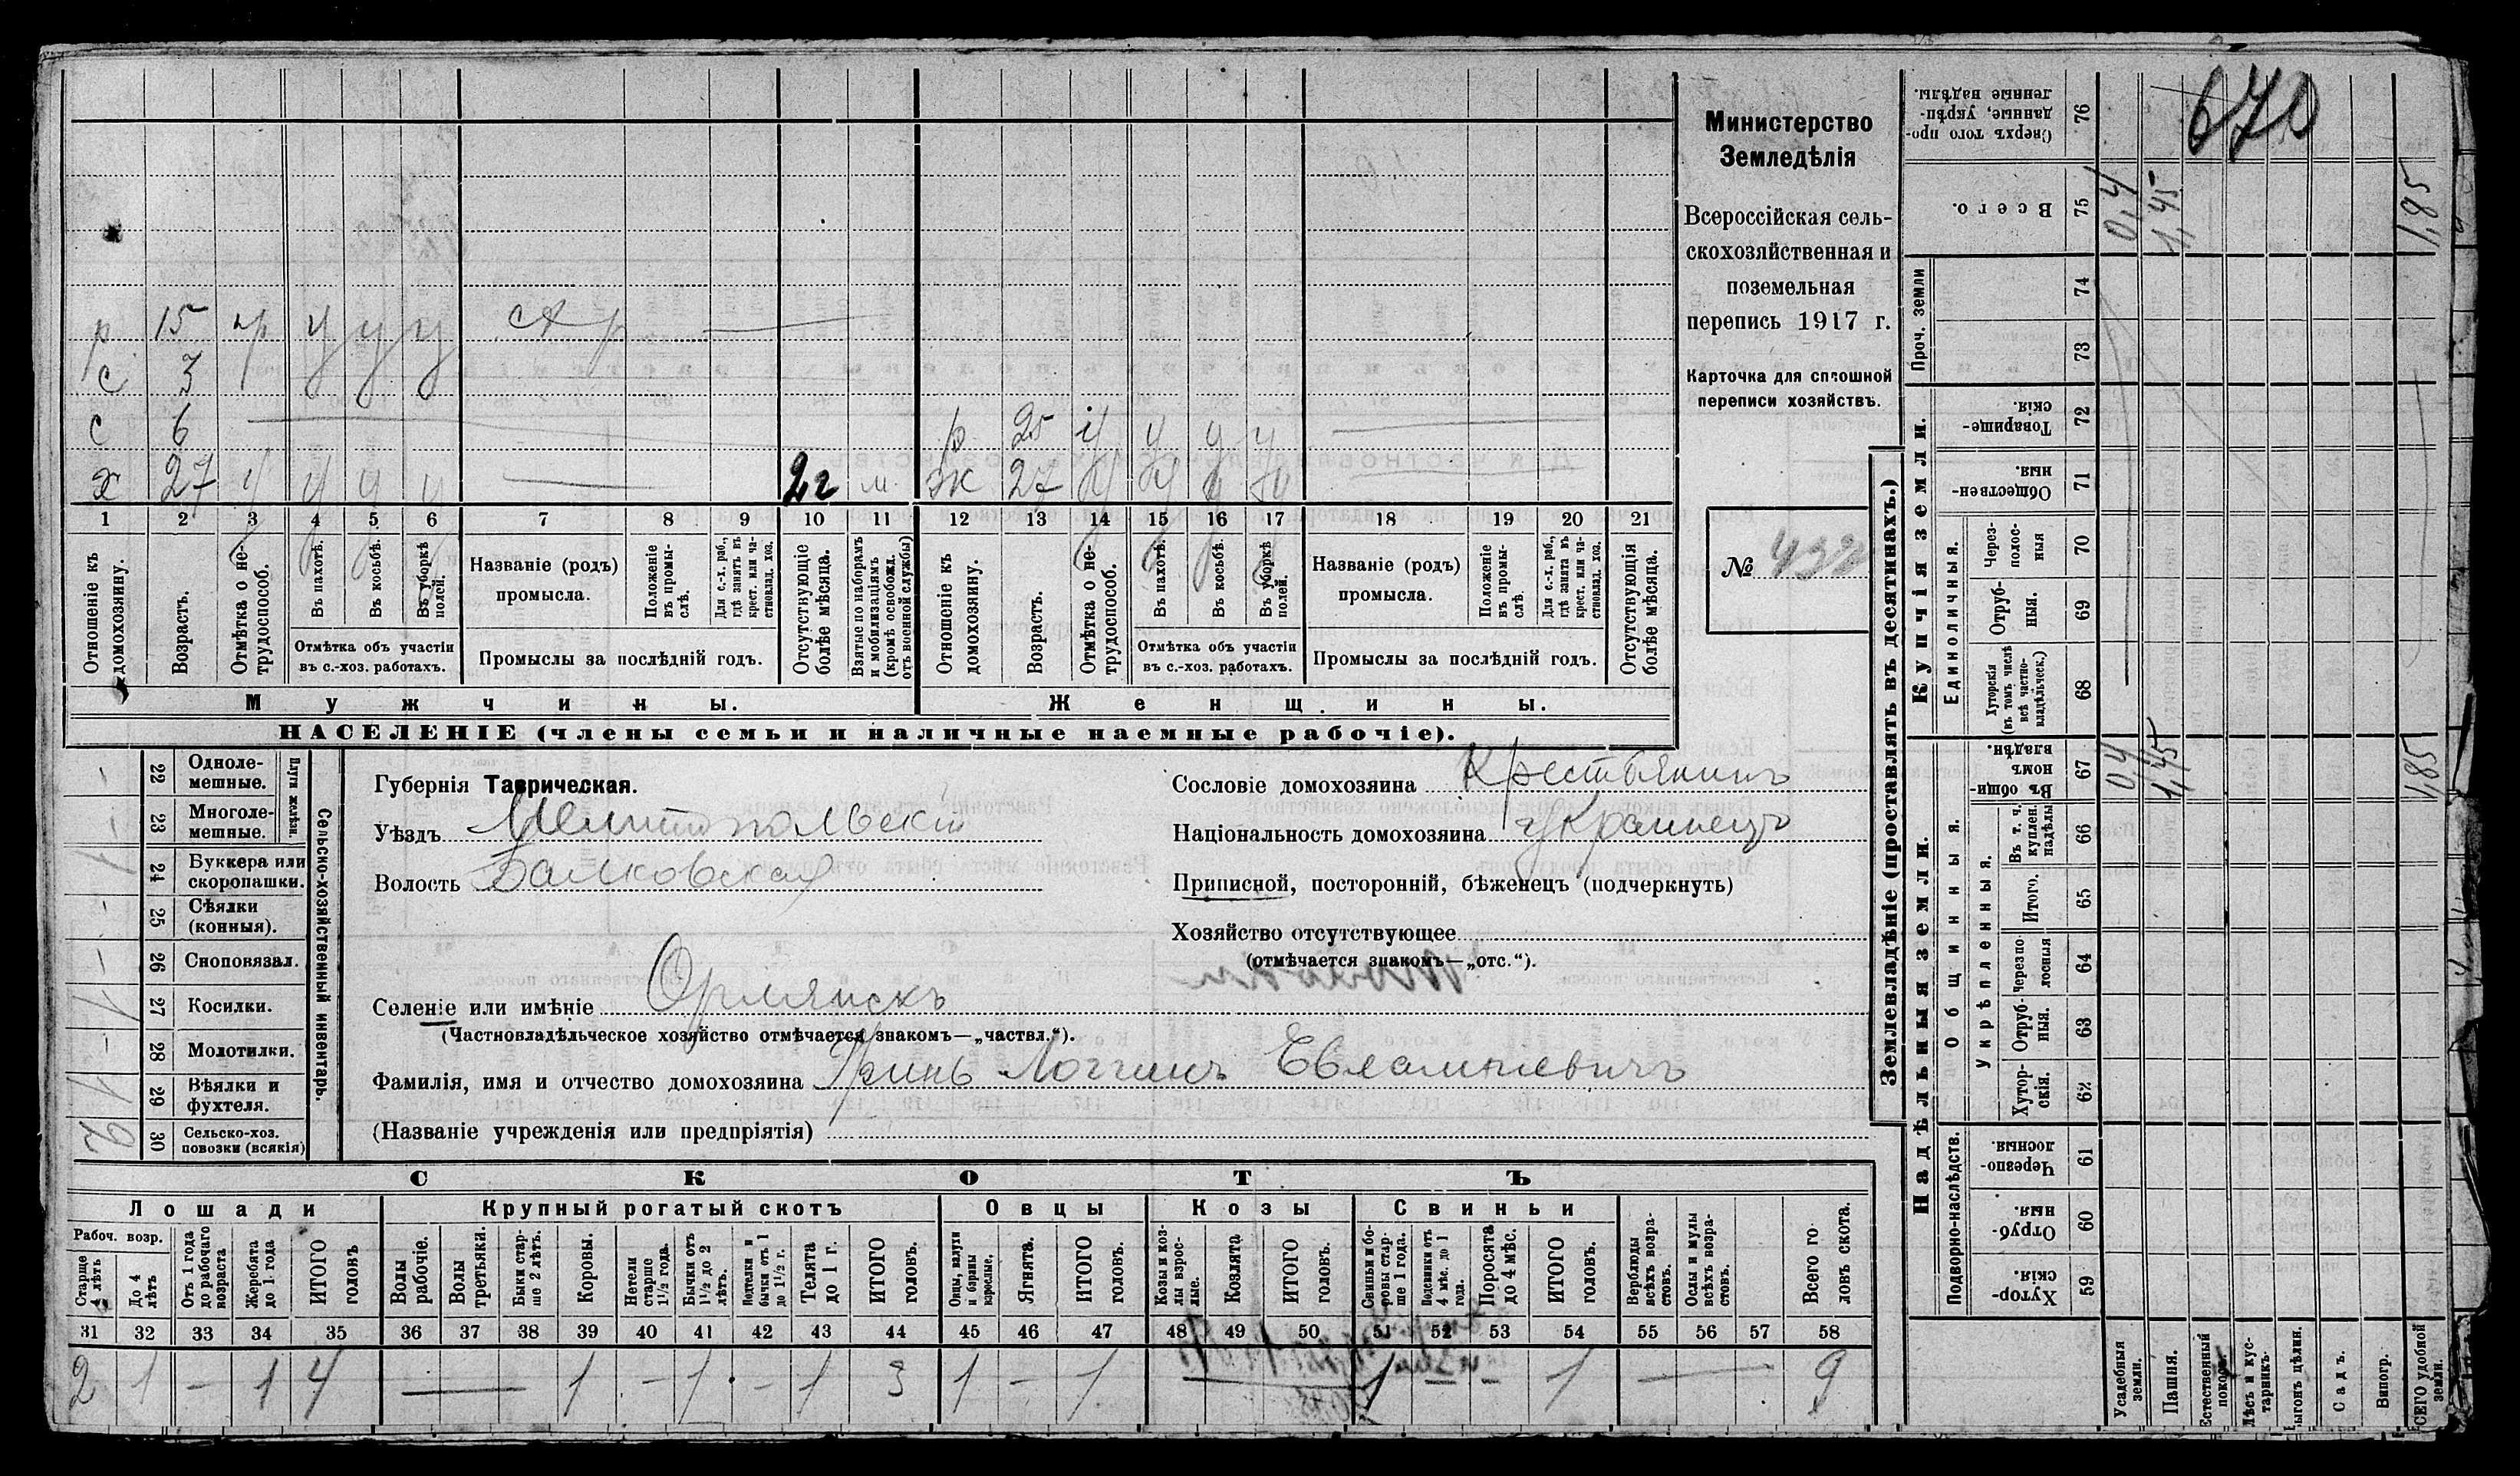 670
Министерство
Земледѣлія
Всероссійская сель-
скохозяйственная и
поземельная
перепись 1917 г.
Карточка для сплошной
переписи хозяйствъ.
№ 432
р 15 у у у
с 3
с 6 р 25 у у у
х 27 у у у у 2г м. ж 27 у у у у
1 2 3 4 5 6 7 8 9 10 11 12 13 14 15 16 17 18 19 20 21
Отношеніе къ домохозяину.
Возрастъ.
Отмѣтка о не-трудоспособ.
Въ пахотѣ.
Въ косьбѣ.
Въ уборкѣ полей.
Отмѣтка объ участіи
въ с.-хоз. работахъ.
Названіе (родъ)
промысла.
Положеніе въ промы-слѣ.
Для с.-х. раб., гдѣ занятъ въ крест. или ча-ствовлад. хоз.
Промыслы за послѣдній годъ.
Отсутствующіе болѣе мѣсяца.
Взятые по наборамъ и мобилизаціямъ (кромѣ освобожд. отъ военной службы)
Отношеніе къ домохозяину.
Возрастъ.
Отмѣтка о не-трудоспособ.
Въ пахотѣ.
Въ косьбѣ.
Въ уборкѣ полей.
Отмѣтка объ участіи
въ с.-хоз. работахъ.
Названіе (родъ)
промысла.
Положеніе въ промы-слѣ.
Для с.-х. раб., гдѣ занята въ крест. или ча-ствовлад. хоз.
Промыслы за послѣдній годъ.
Отсутствующія болѣе мѣсяца.
Мужчины.
Женщины.
НАСЕЛЕНІЕ (члены семьи и наличные наемные рабочіе).
Сельско-хозяйственный инвентарь.
Плуги желѣзн.
– 22 Одноле-мешные.
– 23 Многоле-мешные.
1 24 Буккера или скоропашки.
– 25 Сѣялки (конныя).
– 26 Сноповязал.
1 27 Косилки.
– 28 Молотилки.
1 29 Вѣялки и фухтеля.
2 30 Сельско-хоз. повозки (всякія)
Губернія Таврическая.
Уѣздъ Мелитопольскій
Волость Балковская
Селеніе или имѣніе Орлянскъ
(Частновладѣльческое хозяйство отмѣчается знакомъ—„частвл.“).
Фамилія, имя и отчество домохозяина Гринь Логгинъ Евлампіевичъ
(Названіе учрежденія или предпріятія)
Сословіе домохозяина Крестьянинъ
Національность домохозяина Украинецъ
Приписной, посторонній, бѣженецъ (подчеркнуть)
Хозяйство отсутствующее
(отмѣчается знакомъ—„отс.“).
СКОТЪ
Лошади
Крупный рогатый скотъ
Овцы
Козы
Свиньи
Рабоч. возр.
Старше 4 лѣтъ
До 4 лѣтъ
Отъ 1 года до рабочаго возраста
Жеребята до 1 года
ИТОГО головъ
Волы рабочіе.
Волы третьяки.
Быки стар-ше 2 лѣтъ.
Коровы.
Нетели старше 1½ года.
Бычки отъ 1½ до 2 лѣтъ.
Подтелки и бычки отъ 1 до 1½ г.
Телята до 1 г.
ИТОГО головъ.
Овцы, валухи и бараны взрослые.
Ягнята.
ИТОГО головъ.
Козы и коз-лы взрос-лые.
Козлята
ИТОГО головъ.
Свиньи и бо-ровы стар-ше 1 года.
Подсвинки отъ 4 мѣс. до 1 года.
Поросята до 4 мѣс.
ИТОГО головъ.
Верблюды всѣхъ возра-стовъ.
Ослы и мулы всѣхъ возра-стовъ.
Всего го ловъ скота.
31 32 33 34 35 36 37 38 39 40 41 42 43 44 45 46 47 48 49 50 51 52 53 54 55 56 57 58
2 1 – 1 4 — 1 – 1 – 1 3 1 – 1 — 1 – – 1 — 9
Землевладѣніе (проставлять въ десятинахъ.)
Купчія земли.
Надѣльныя земли.
Сверхъ того про-данные, укрѣп-ленные надѣлы. 76
Всего. 75 0,4 1,45 1,85
Проч. земли
74
73
Товарище-скія. 72
Обществен-ныя. 71
Единоличныя.
Через-полос-ныя 70
Отруб-ныя. 69
Хуторскія (въ томъ числѣ всѣ частно-владѣльческ.) 68
Общинныя.
Въ общи-номъ владѣн. 67 0,4 1,45 1,85
Укрѣпленныя.
Въ т. ч. куплен. надѣлы 66
Итого. 65
Черезпо лосныя 64
Отруб-ныя. 63
Хутор-скія. 62
Подворно-наслѣдств.
Черезпо-лосныя. 61
Отруб-ныя. 60
Хутор-скія. 59
Усадебныя земли.
Пашня.
Естественный покосъ.
Лѣсъ и кус-тарникъ.
Выгонъ цѣлин.
Садъ.
Виногр.
ВСЕГО удобной земли.